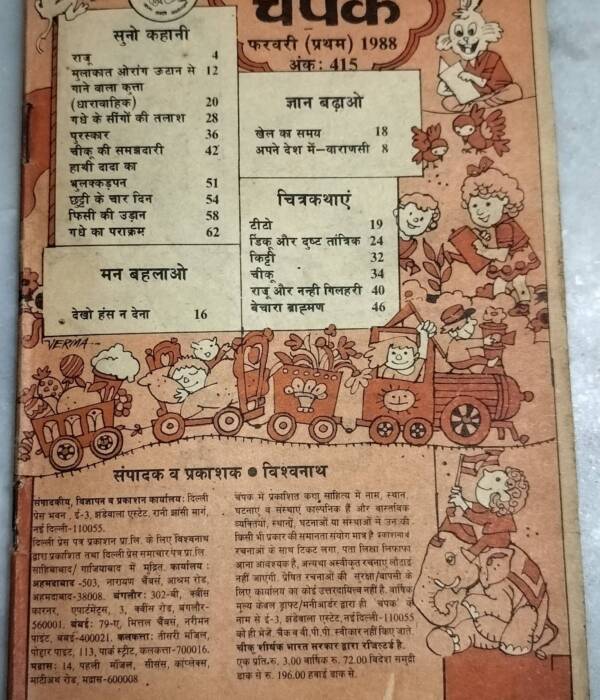 चंपक
फरवरी (प्रथम) 1988
अंक: 415
सुनो कहानी
राजू 4
मुलाकात ओरांग ऊटान से 12
गाने वाला कुत्ता
(धारावाहिक) 20
गधे के सींगों की तलाश 28
पुरस्कार 36
चीकू की समझदारी 42
हाथी दादा का
भुलक्कड़पन 51
छुट्टी के चार दिन 54
फिसी की उड़ान 58
गधे का पराक्रम 62
ज्ञान बढ़ाओ
खेल का समय 18
अपने देश में—वाराणसी 8
चित्रकथाएं
टीटो 19
डिंकू और दुष्ट तांत्रिक 24
किट्टी 32
चीकू 34
राजू और नन्ही गिलहरी 40
बेचारा ब्राह्मण 46
मन बहलाओ
देखो हंस न देना 16
VERMA
संपादक व प्रकाशक ● विश्वनाथ
संपादकीय, विज्ञापन व प्रकाशन कार्यालय: दिल्ली
प्रेस भवन, ई-3, झंडेवाला एस्टेट, रानी झांसी मार्ग,
नई दिल्ली-110055.
दिल्ली प्रेस पत्र प्रकाशन प्रा.लि. के लिए विश्वनाथ
द्वारा प्रकाशित तथा दिल्ली प्रेस समाचार पत्र प्रा.लि.
साहिबाबाद/ गाजियाबाद में मुद्रित. कार्यालय:
अहमदाबाद -503, नारायण चैंबर्स, आश्रम रोड,
अहमदाबाद-38008. बंगलौर: 302-बी, क्वींस
कारनर, एपार्टमेंट्स, 3, क्वींस रोड, बंगलौर-
560001. बंबई: 79-ए, मित्तल चैंबर्स, नरीमन
पाइंट, बंबई-400021. कलकत्ता: तीसरी मंजिल,
पोद्दार पाइंट, 113, पार्क स्ट्रीट, कलकत्ता-700016.
मद्रास: 14, पहली मंजिल, सीसंस, कांप्लेक्स,
मांटीअथ रोड, मद्रास-600008.
चंपक में प्रकाशित कथा साहित्य में नाम, स्थान,
घटनाएं व संस्थाएं काल्पनिक हैं और वास्तविक
व्यक्तियों, स्थानों, घटनाओं या संस्थाओं से उन की
किसी भी प्रकार की समानता संयोग मात्र है. प्रकाशनार्थ
रचनाओं के साथ टिकट लगा, पता लिखा लिफाफा
आना आवश्यक है, अन्यथा अस्वीकृत रचनाएं लौटाई
नहीं जाएंगी. प्रेषित रचनाओं की सुरक्षा/वापसी के
लिए कार्यालय का कोई उत्तरदायित्व नहीं है. वार्षिक
मूल्य केवल ड्राफ्ट/मनीआर्डर द्वारा ही 'चंपक' के
नाम से ई-3, झंडेवाला एस्टेट, नई दिल्ली-110055
को ही भेजें. चैक व वी.पी.पी. स्वीकार नहीं किए जाते.
चीकू शीर्षक भारत सरकार द्वारा रजिस्टर्ड है.
एक प्रति-रु. 3.00 वार्षिक रु. 72.00 विदेश समुद्री
डाक से रु. 196.00 हवाई डाक से.